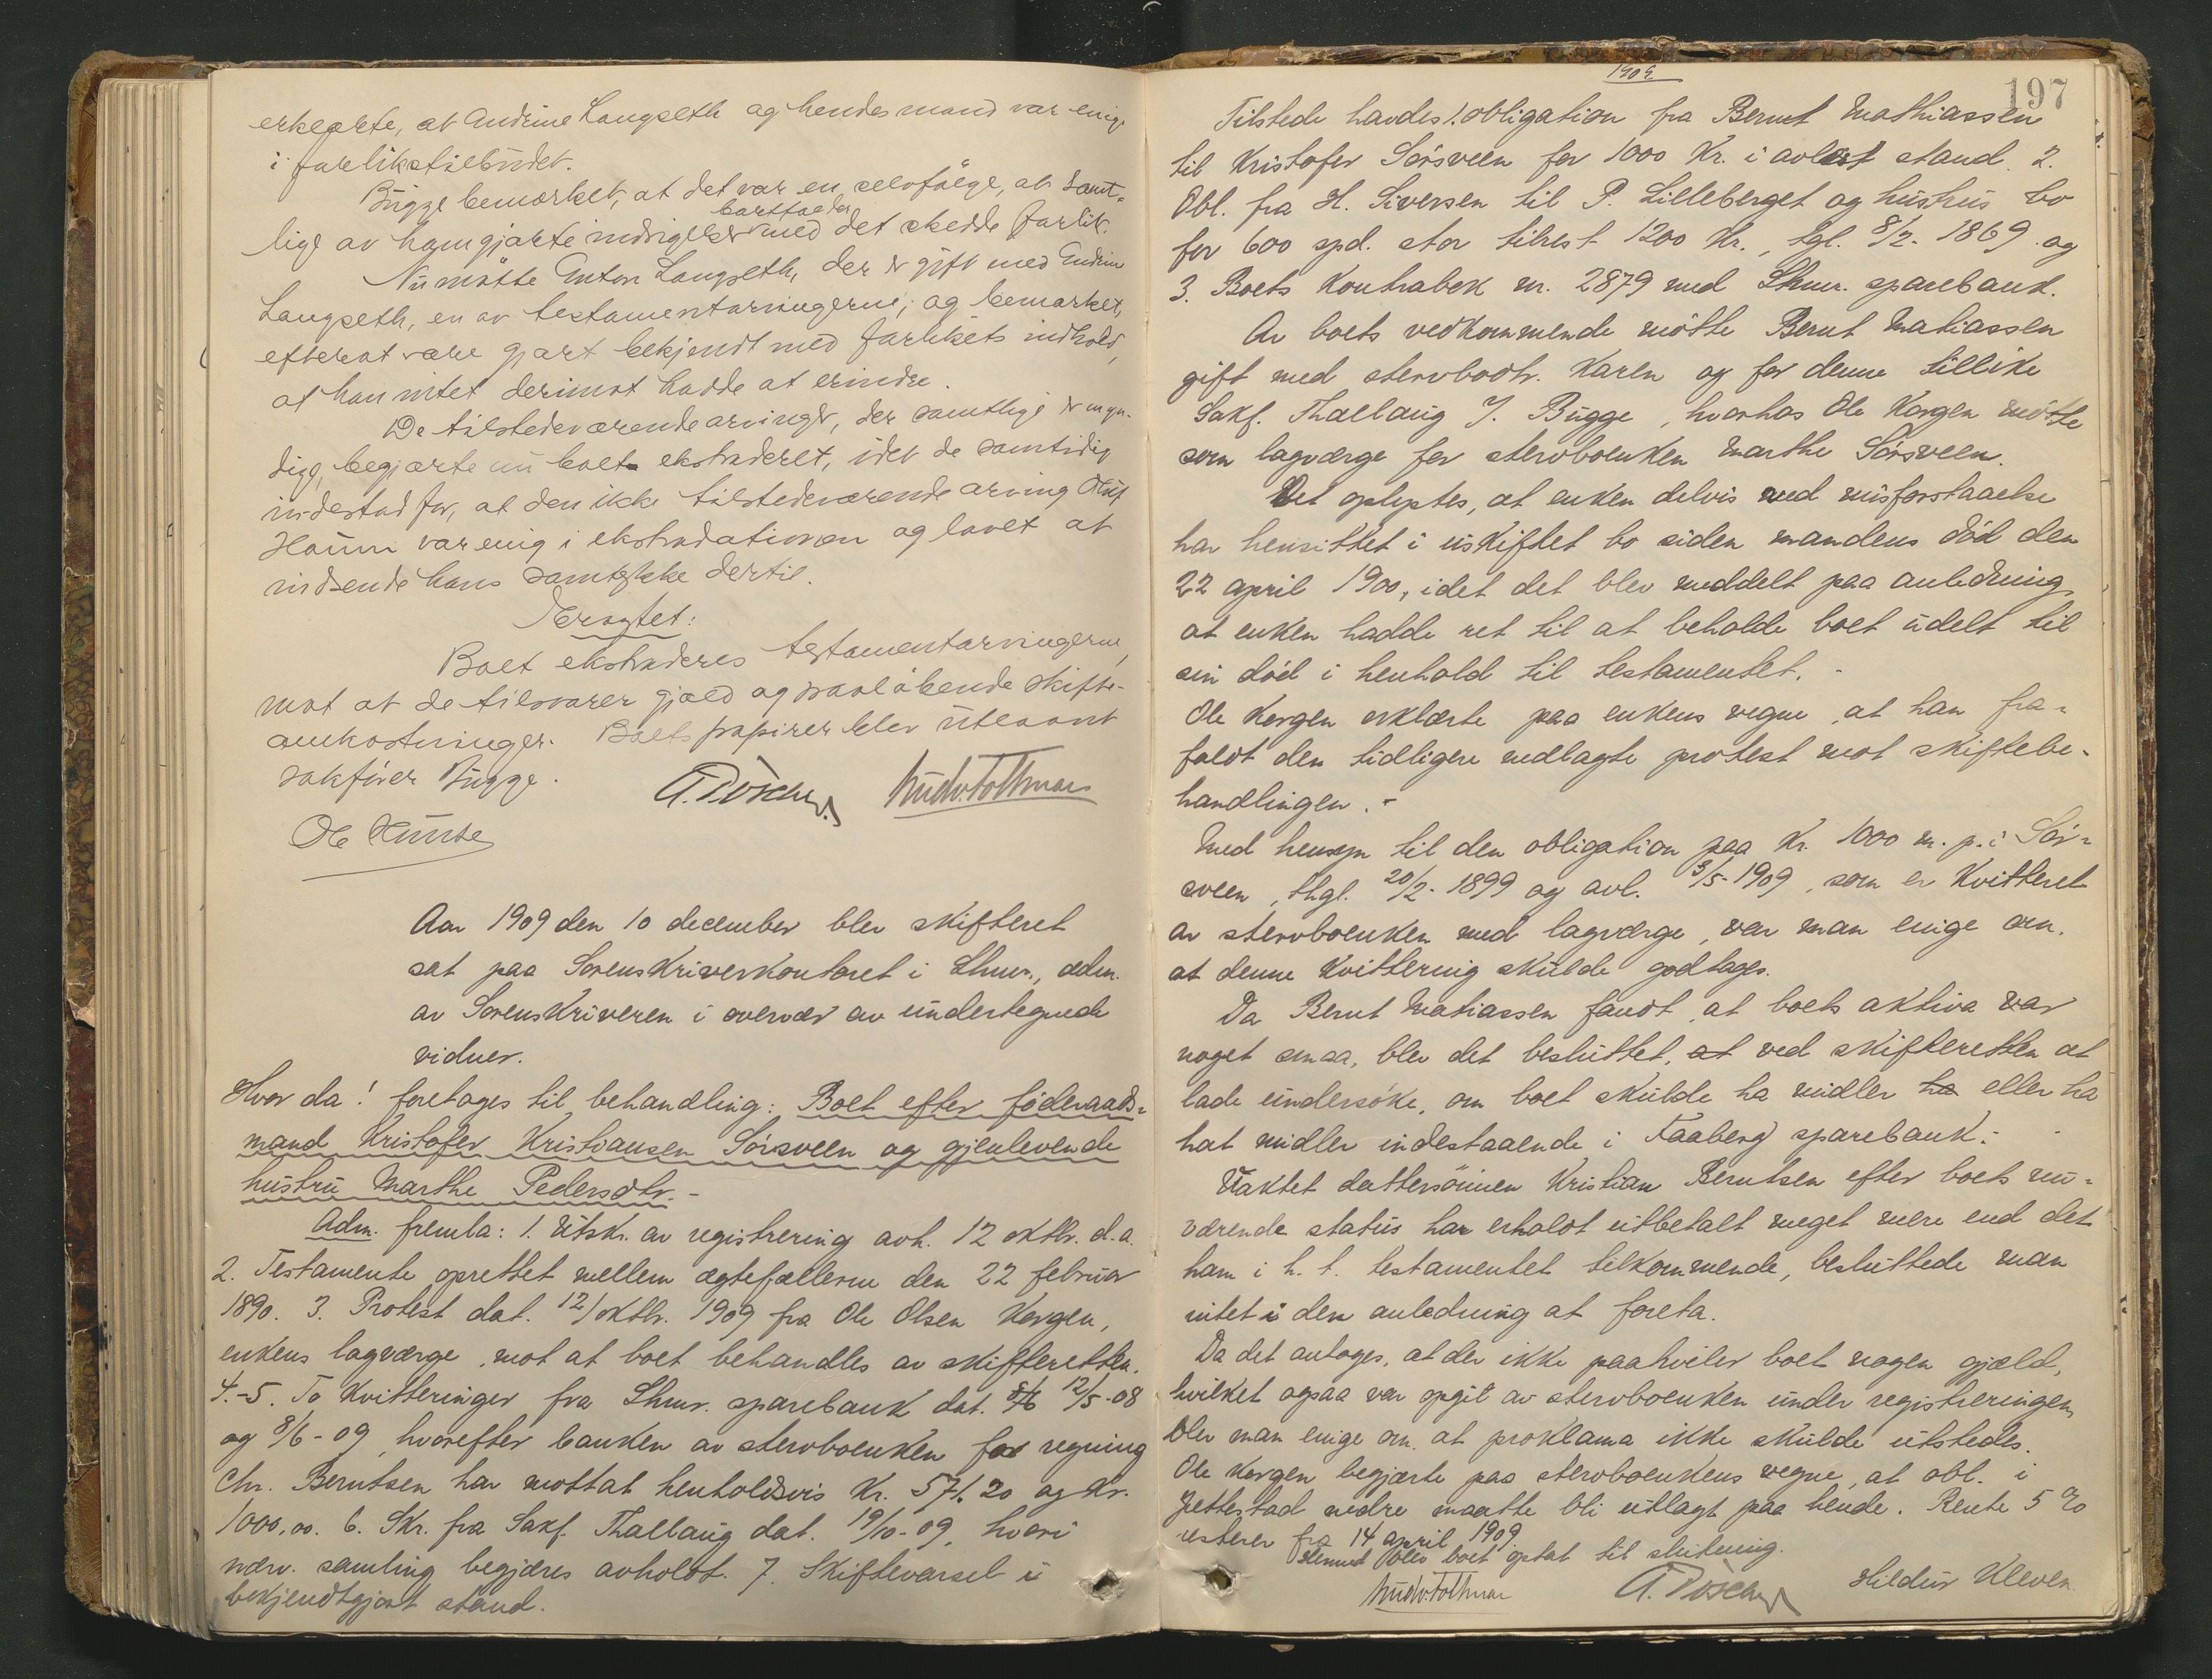 erklærte, at Andrine Langseth og hendes mand var enige
i forlikstilbudet.
Bugge bemærket, at det var en selvfølge, at samt-
lige av ham gjorte indsigelser bortfalder
med det skedde forlik.
Nu møtte Anton Langseth, der er gift med Andrine
Langseth, en av testamentarvingerne, og bemærket,
efterat være gjort bekjendt med forlikets indhold,
at han intet derimot hadde at erindre.
De tilstedeværende arvinger, der samtlige er myn-
dige, begjærte nu boet ekstraderet, idet de samtidig
indestod for, at den ikke tilstedeværende arving Oluf
Haum var enig i ekstradationen og lovet at
indsende hans samtykke dertil.
Eragtet:
Boet ekstraderes testamentarvingerne,
mot at de tilsvarer gjæld og paaløbende skifte-
omkostninger. Boets papirer blev utleveret
sakfører Bugge.
A. Poschmann Ludv. Tollman
Ole Hunde
Aar 1909 den 10 december blev skifteret
sat paa Sorenskriverkontoret i Lhmr., adm.
av Sorenskriveren i overvær av undertegnede
vidner.
Hvor da! foretages til behandling: Boet efter føderaads-
mand Kristofer Kristiansen Sørsveen og gjenlevende
hustru Marthe Pedersdtr. -
Adm. fremla: 1. Utskr. av registrering avh. 12 oktbr. d.a.
2. Testamente oprettet mellem ægtefællerne den 22 februar
1890. 3. Protest dat. 12/oktbr. 1909 fra Ole Olsen Korgen,
enkens lagværge, mot at boet behandles av skifteretten.
4.-5. To kvitteringer fra Lhmr. sparebank dat. 12/5-08
og 8/6-09, hvorefter banken av stervboenken for regning
Chr. Berntsen har mottat henholdsvis Kr. 571.20 og Kr.
1000,00. 6. Skr. fra Sakf. Thallaug dat. 19/10-09, hvori
nærv. samling begjæres avholdt. 7. Skiftevarsel i
bekjendtgjort stand.
1909.
197
Tilstede havdes 1. obligation fra Bernt Mathiassen
til Kristofer Sørsveen for 1000 Kr. i avlæst stand. 2.
Obl. fra H. Siversen til P. Lilleberget og hustrus bo
for 600 spd. stor tilrest 1200 Kr., tgl. 8/2-1869 og
3. Boets kontrabok nr. 2879 med Lhmr. sparebank.
Av boets vedkommende møtte Bernt Matiassen
gift med stervbodtr. Karen og for denne tillike
Sakf. Thallaug J. Bugge, hvorhos Ole Korgen møtte
som lagværge for stervboenken Marthe Sørsveen.
Det oplystes, at enken delvis ved misforstaaelse
har hensittet i uskiftet bo siden mandens død den
22 april 1900, idet det blev meddelt paa anledning,
at enken hadde ret til at beholde boet udelt til
sin død i henhold til testamentet. -
Ole Korgen erklærte paa enkens vegne, at han fra-
faldt den tidligere nedlagte protest mot skiftebe-
handlingen. -
Med hensyn til den obligation paa Kr. 1000 m. p. i Sør-
sveen, thgl. 20/2-1899 og avl. 3/5-1909, som er kvitteret
av stervboenken med lagværge, var man enige om,
at denne kvittering skulde godtages.
Da Bernt Matiassen fandt, at boets aktiva var
noget smaa, blev det besluttet, at ved skifteretten at
lade undersøke, om boet skulde ha midler ha eller ha
hat midler indestaaende i Faaberg sparebank. -
Uaktet dattersønnen Kristian Berntsen efter boets nu-
værende status har erholdt utbetalt meget mere end det
ham i h. t. testamentet tilkommende, besluttede man
intet i den anledning at foreta.
Da det antoges, at der ikke paahviler boet nogen gjæld,
hvilket ogsaa var opgit av stervboenken under registreringen,
blev man enige om, at proklama ikke skulde utstedes.
Ole Korgen begjærte paa stervboenkens vegne, at obl. i
Jettestad nedre maatte bli utlagt paa hende. Rente 5 %
resterer fra 14 april 1909.
Hermed blev boet optat til slutning.
Ludv. Tollman A. Poschmann Hildur Kleven